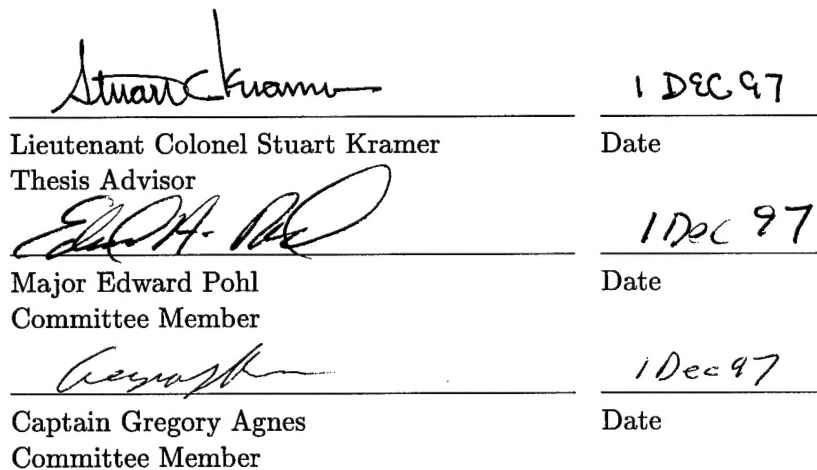 Stuart C Kramer 1 DEC 97
Lieutenant Colonel Stuart Kramer Date
Thesis Advisor
Edward A. Pohl 1 Dec 97
Major Edward Pohl Date
Committee Member
1 Dec 97
Captain Gregory Agnes Date
Committee Member